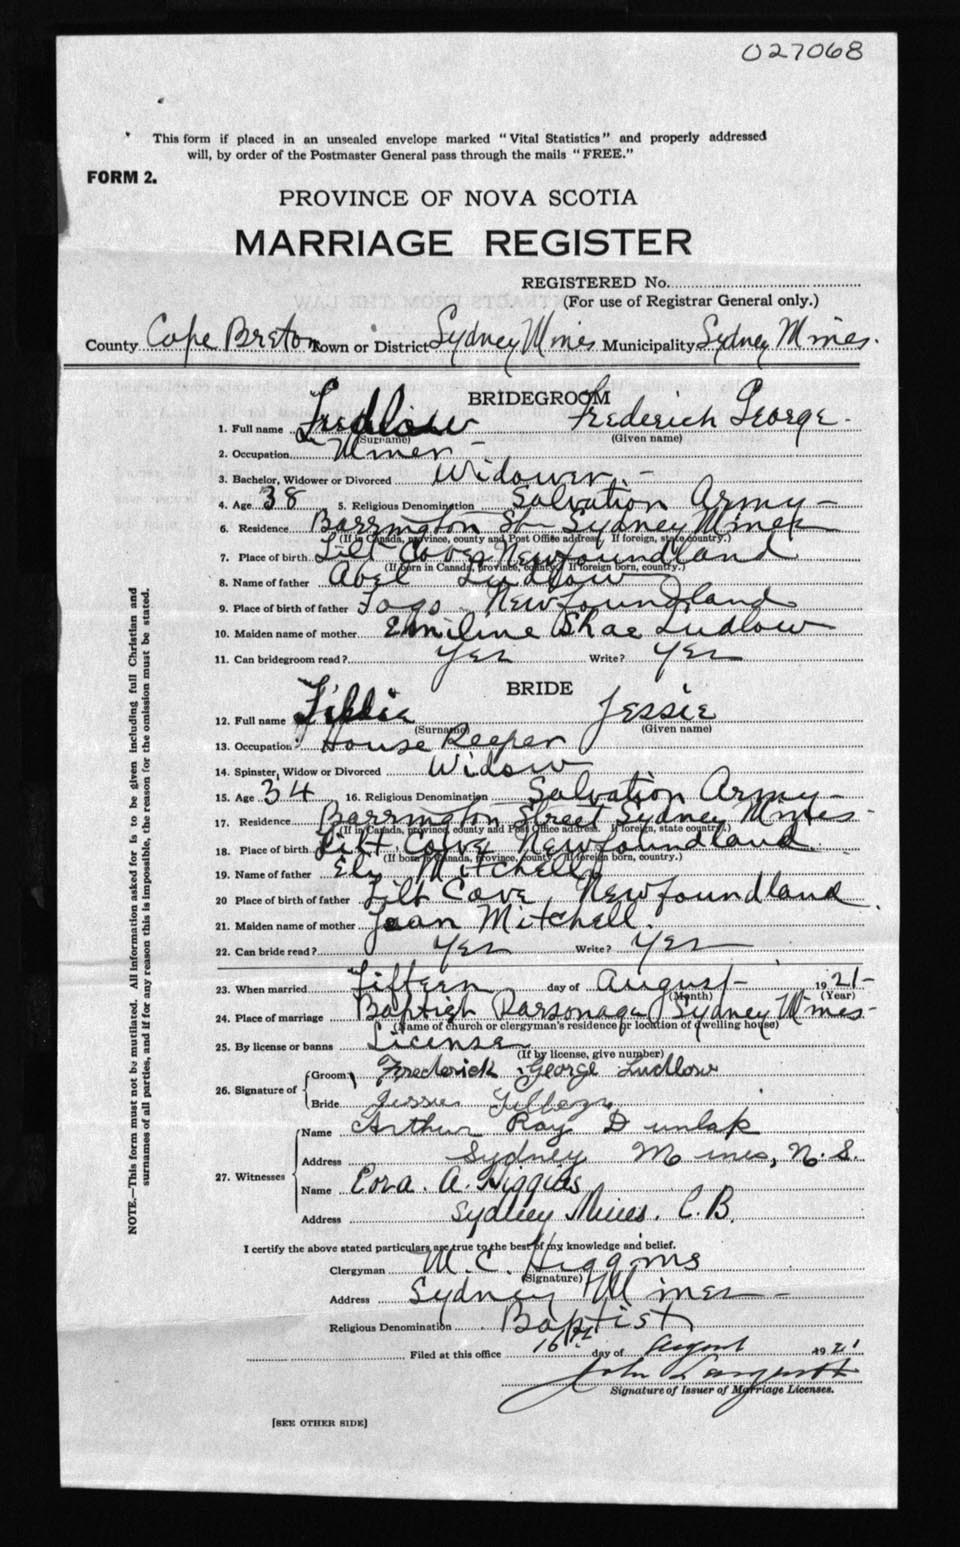 027068
This form if placed in an unsealed envelope marked "Vital Statistics" and properly addressed
will, by order of the Postmaster General pass through the mails "FREE."
FORM 2.
PROVINCE OF NOVA SCOTIA
MARRIAGE REGISTER
REGISTERED No.
(For use of Registrar General only.)
County Cape Breton Town or District Sydney Mines Municipality Sydney Mines.
BRIDEGROOM
1. Full name Ludlow Frederich George.
(Surname) (Given name)
2. Occupation Miner -
3. Bachelor, Widower or Divorced Widower. -
4. Age 38 5. Religious Denomination Salvation Army -
6. Residence Barrington St Sydney Mines
(If in Canada, province, county and Post Office address. If foreign, state country.)
7. Place of birth Tilt Cove Newfoundland
(If born in Canada, province, county. If foreign born, country.)
8. Name of father Abel Ludlow
9. Place of birth of father Fogo Newfoundland
10. Maiden name of mother Emiline Shae Ludlow
11. Can bridegroom read? Yes Write? Yes
BRIDE
12. Full name Jessie
(Surname) (Given name)
13. Occupation House Keeper
14. Spinster, Widow or Divorced Widow
15. Age 34 16. Religious Denomination Salvation Army -
17. Residence Barrington Street Sydney Mines -
(If in Canada, province, county and Post Office address. If foreign, state country.)
18. Place of birth Tilt Cove Newfoundland.
(If born in Canada, province, county. If foreign born, country.)
19. Name of father Ely Mitchell
20 Place of birth of father Tilt Cove Newfoundland.
21. Maiden name of mother Joan Mitchell.
22. Can bride read? Yes Write? Yes
23. When married Fifteen day of August - 1921 -
(Month) (Year)
24. Place of marriage Baptist Parsonage Sydney Mines -
(Name of church or clergyman's residence or location of dwelling house)
25. By license or banns License
(If by license, give number)
26. Signature of
Groom Frederick George Ludlow
Bride Jessie
27. Witnesses
Name Arthur Ray Dunlap
Address Sydney Mines, N.S.
Name Cora. A. Higgins
Address Sydney Mines. C.B.
I certify the above stated particulars are true to the best of my knowledge and belief.
Clergyman M. C. Higgins
(Signature)
Address Sydney Mines -
Religious Denomination Baptist
Filed at this office 16th day of August 1921
John
Signature of Issuer of Marriage Licenses.
[SEE OTHER SIDE]
NOTE.—This form must not be mutilated. All information asked for is to be given including full Christian and
surnames of all parties, and if for any reason this is impossible, the reason for the omission must be stated.